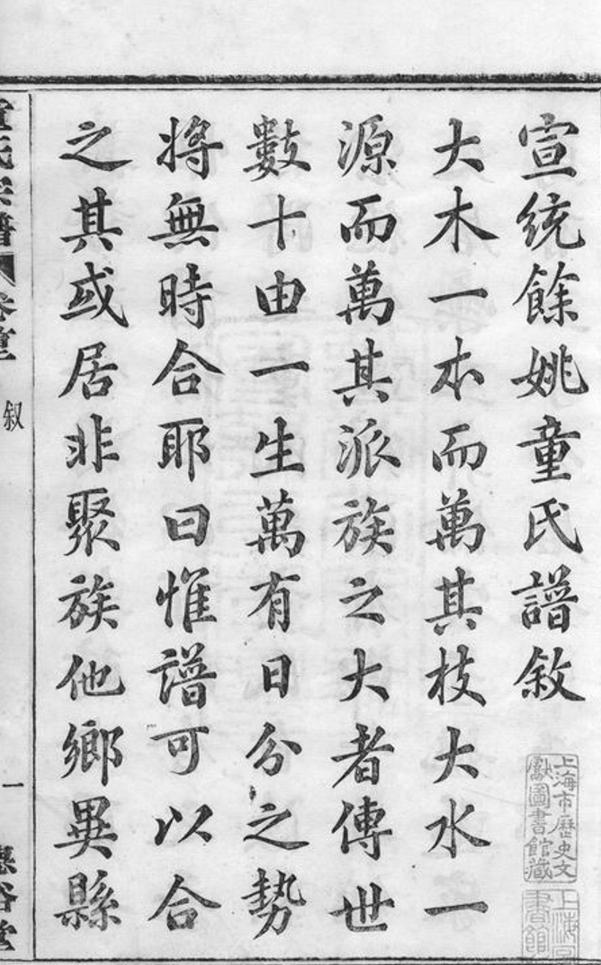 宣統餘姚童氏譜敘
大木一本而萬其枝大水一
源而萬其派族之大者傳世
數十由一生萬有日分之勢
將無時合耶曰惟譜可以合
之其或居非聚族他鄉異縣
童氏宗譜
卷首
叙
一
德裕堂
上海市歷史文
獻圖書館藏
上海
書館